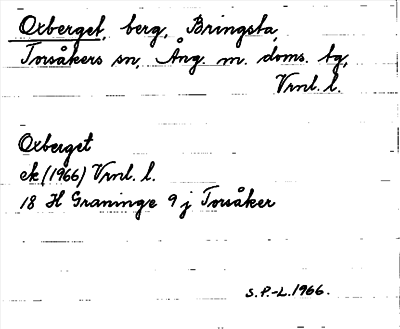 Oxberget, berg, Bringsta,
Torsåkers sn, Ång. m. doms. tg,
Vrnl. l.
Oxberget
ek (1966) Vrnl. l.
18 H Graninge 9 j Torsåker
S.P.-L. 1966.